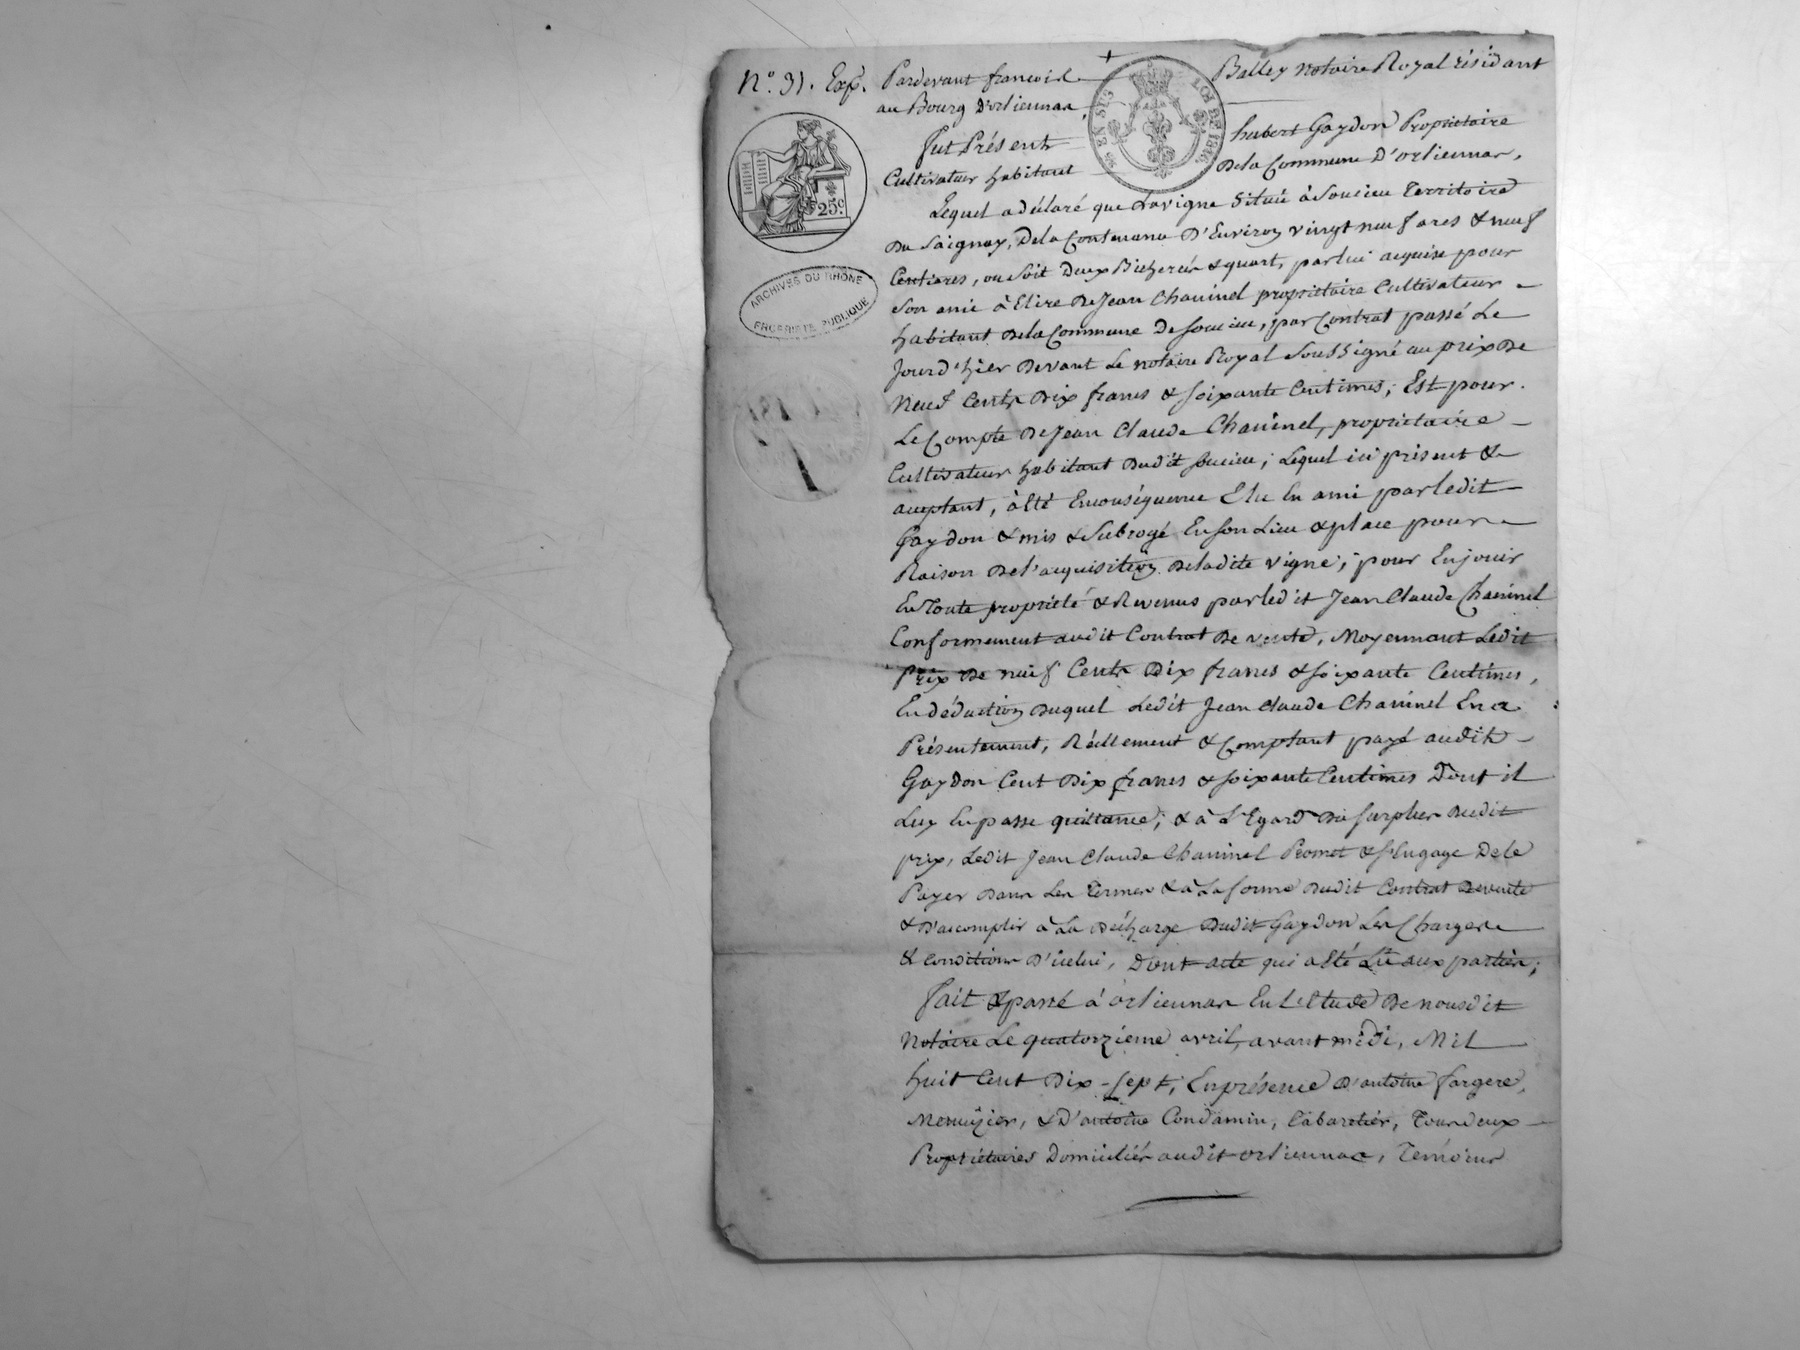 N.° 91. Exp. Pardevant francois Balley Notaire Royal résidant
au Bourg D'orliennas,
EN SUS
LOI DE 1816
25 c.
ARCHIVES DU RHÔNE
PROPRIÉTÉ PUBLIQUE
fut Présent hubert Gaydon Propriétaire
Cultivateur habitant Dela Commune D'orliennas,
Lequel a déclaré que La vigne Située à Soucieu Territoire
Du Saignay, Dela Contenance D'Environ vingt neuf ares & neuf
Centiares, ou Soit Deux Bicherées & quart, par lui acquise pour
Son ami à Elire De Jean Chavinel propriétaire Cultivateur
habitant Dela Commune De Soucieu, par Contrat passé Le
Jour d'hier Devant Le notaire Royal Soussigné au prix De
Neuf Cents Dix francs & soixante Centimes; Est pour
Le Compte De Jean Claude Chavinel, propriétaire
Cultivateur habitant Dudit Soucieu; Lequel ici présent &
acceptant, à Eté En conséquence Elu En ami par ledit
Gaydon & mis & Subrogé En son Lieu & place pour
Raison De l'acquisition De ladite vigne; pour En jouir
En Toute propriété & Revenus par led it Jean Claude Chavinel
Conformement audit Contrat De vente, Moyennant Ledit
Prix De neuf Cents Dix francs & soixante Centimes,
En déduction Duquel Ledit Jean Claude Chavinel En a
Présentement, Réellement & Comptant payé audit
Gaydon Cent Dix francs & soixante Centimes Dont il
Luy En passe quittance; & à L'Egard Du surplus Dudit
prix, Ledit Jean Claude Chavinel Promet & s'Engage De le
Payer Dans Les Termes & à La forme Dudit Contrat De vente
& D'accomplir à La Décharge Dudit Gaydon Les Charges
& Conditions D'icelui, Dont acte qui a Eté Lû aux parties;
fait & passé à orliennas En L'Etude De nousdit
Notaire Le quatorzieme avril, avant midi, Mil
huit Cent Dix-sept, En présence D'antoine fargere,
Menuizier, & D'antoine Condamin, Cabaretier, Tous deux
Propriétaires Domiciliés audit orliennas, Témoins